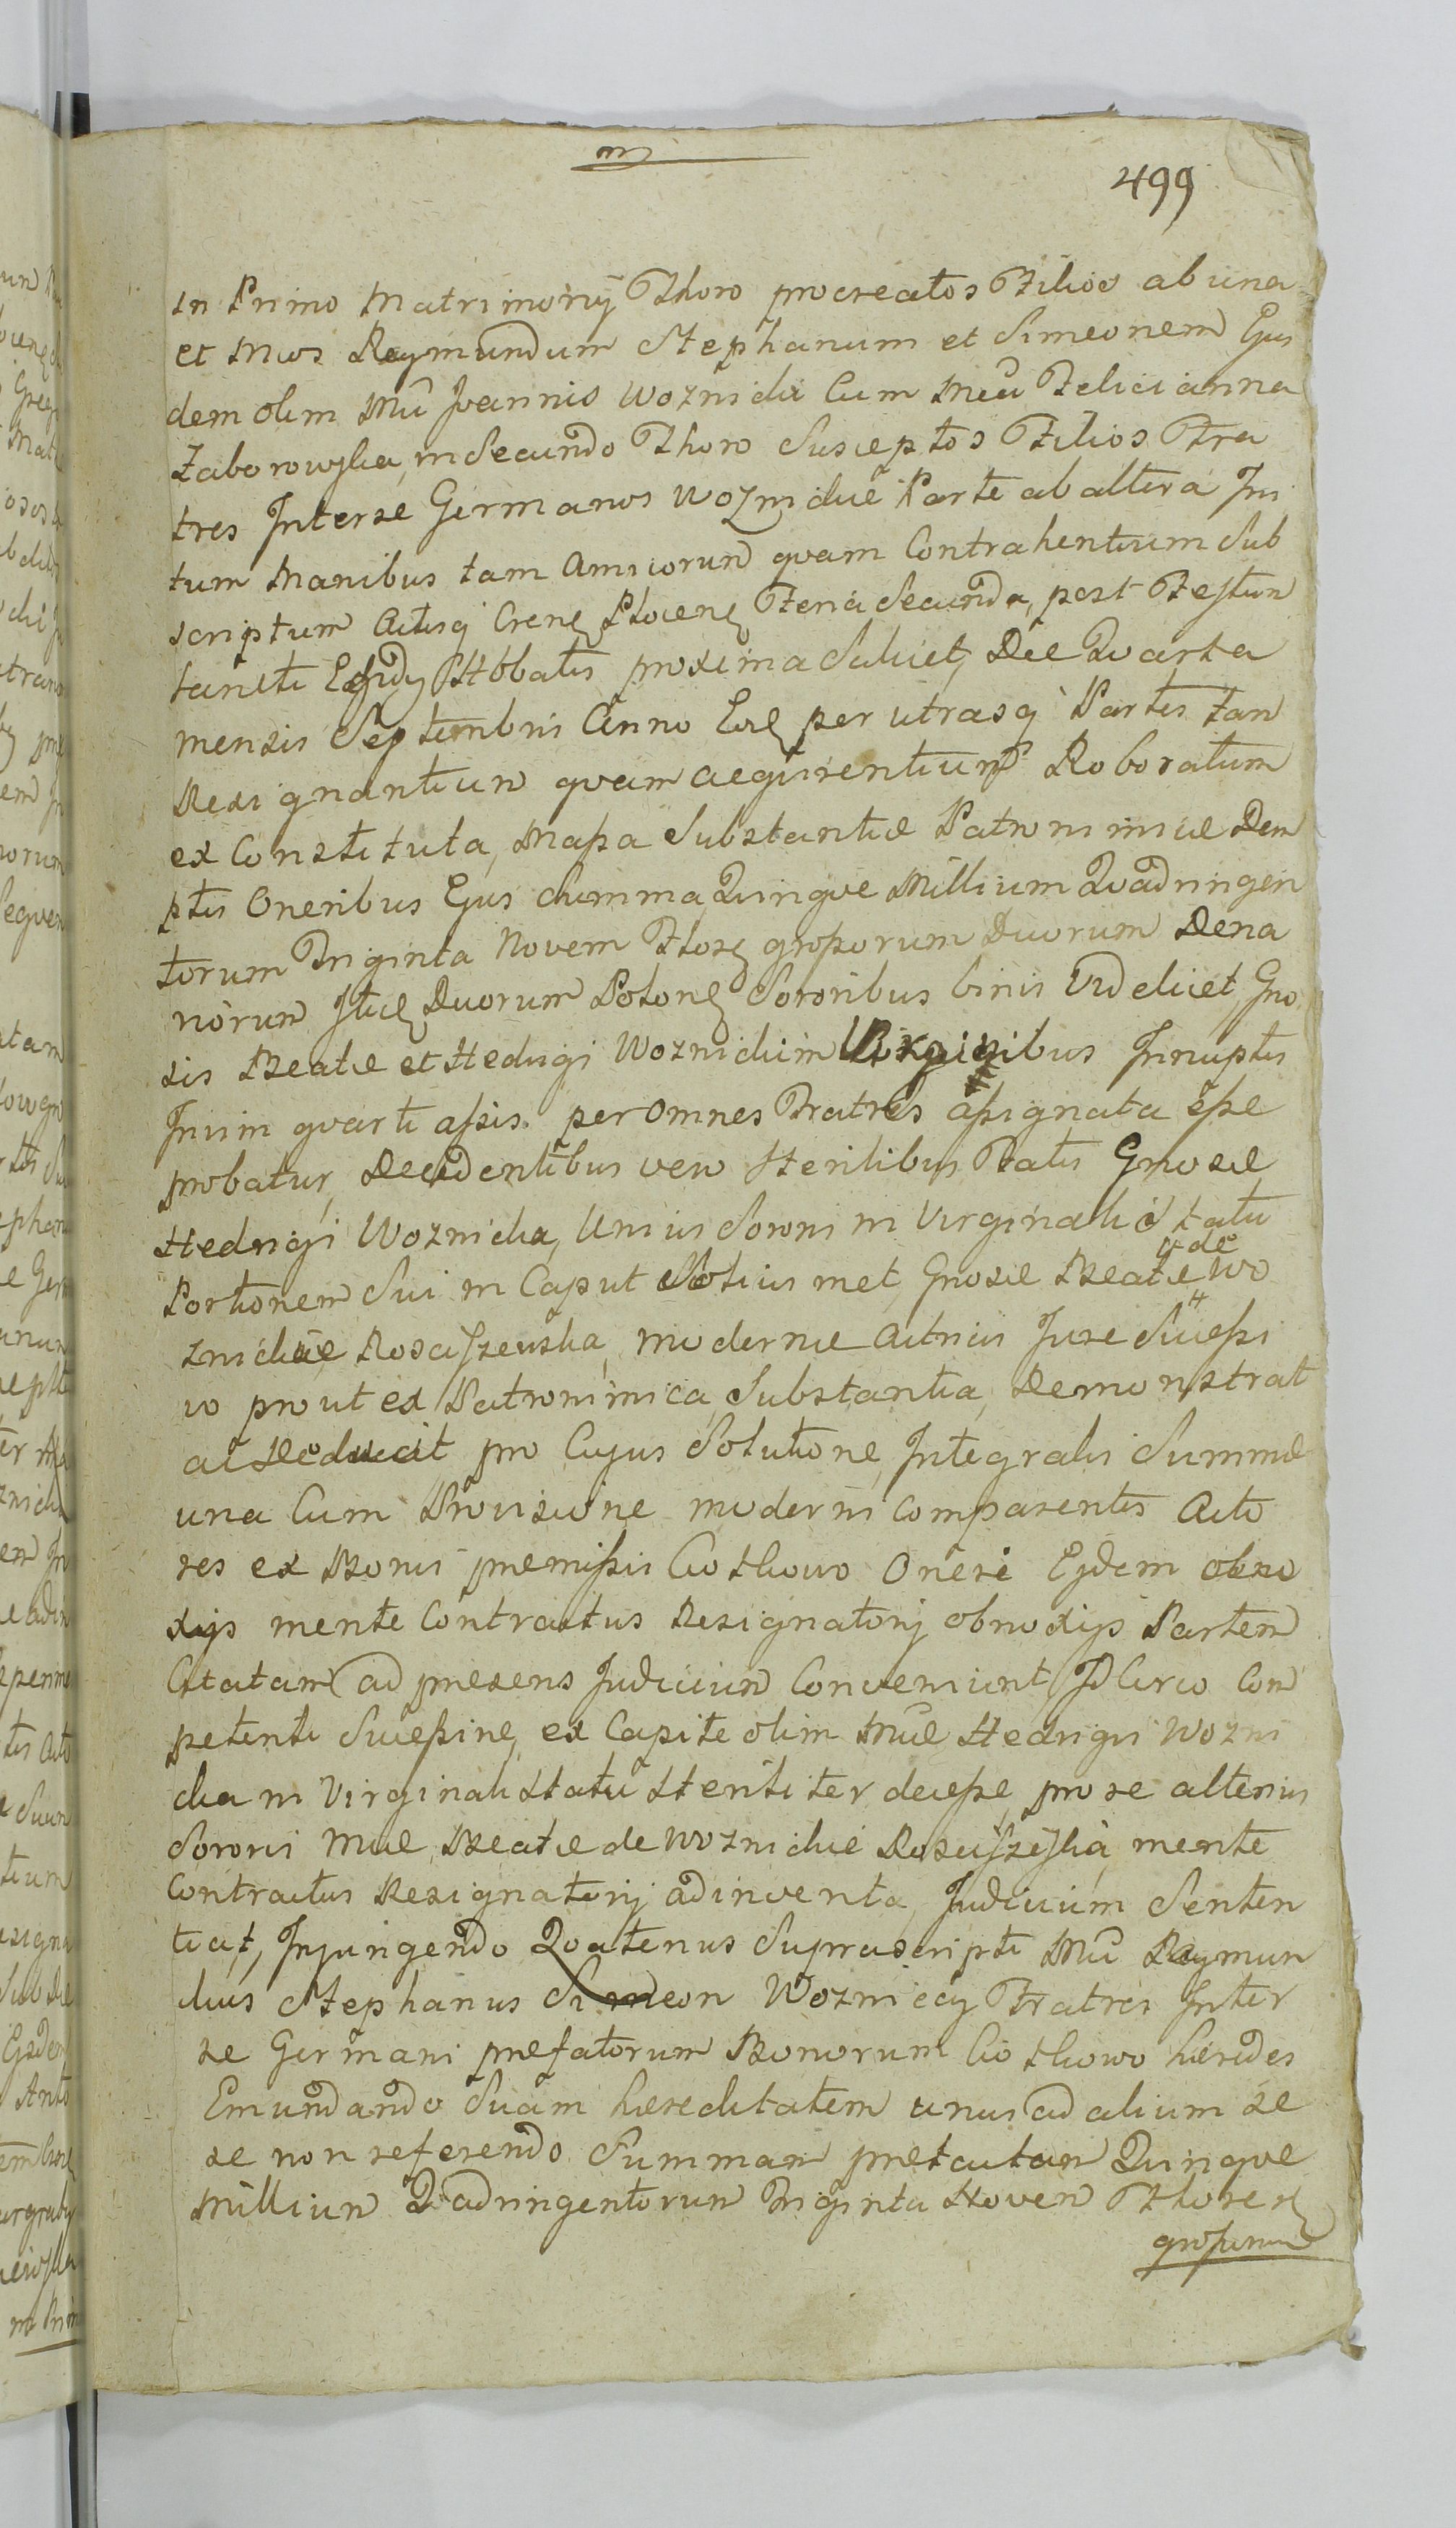 m
499
in Primo Matrimonij Thoro procreatos Filios ab una
et Mcos Raymundum Stephanum et Simeonem Ejus
dem olim Mci Joannis Woznicki Cum Mca Felicianna
Zaborowska, in Secundo Thoro Susceptos Filios Fra
tres Inter se Germanos Woznickie Parte ab altera Ini
tum Manibus tam Amicorum quam Contrahentium Sub
scriptum Actisq Cren Plocen Feria Secunda, post Festum
Sancti Egidy Abbatis proxima Scilicet, Die Quarta
mensis Septembris Anno Eod per utrasq Partes tam
Resignantium quam acquirentium Roboratum
ex Constituta, Massa Substantiæ Patronimicæ Dem
ptis Oneribus Ejus Summa Quinque Millium Quadringen
torum Triginta Novem Flor grossorum Duorum Dena
riorum Duorum Polon Sororibus binis Videlicet, Gno
sis Beatæ et Hedvigi Woznickim Virginibus Innuptis
Inuim quarti assis per omnes Fratres assignata esse
probatur, Decedentibus vero sterilibus Fatis Gnosæ
Hedvigi Woznicka, Unius Sororis in Virginali Statu
Portionem Sui in Caput Solius met, Gnosæ Beatæ de Wo
znickie Rosciszewska, moderne Actricis Jure Successi
vo prout ex Patronimica Substantia, Demonstrat
ac Deducit pro Cujus Solutione Integralis Summæ
una Cum Provisione moderni Comparentes Acto
res ex Bonis premissis Ciotkowo Oneri Ejdem obno
xijs mente Contractus Resignatorij obnoxijs Partem
Citatam ad presens Judicium Conveniunt, Id Circo Com
petenti Successine, ex Capite olim Mcæ Hedvigis Wozni
cka in Virginali Statu Steriliter decessæ, pro se alterius
Sororis Mcæ Beatæ de Woznickie Rosciszewska mente
Contractus Resignatorij adinventa, Judicium Senten
tiat, Injungendo Quatenus Suprascripti Mci Raymun
dus Stephanus Simeon Woznieccy Fratres Inter
se Germani prefatorum Bonorum Ciotkowo hæredes
Emundando Suam hæreditatem unus ad alium se
se non referendo Summam pretactam Quinque
Millium Quadringentorum Triginta Novem Floren
grossorum